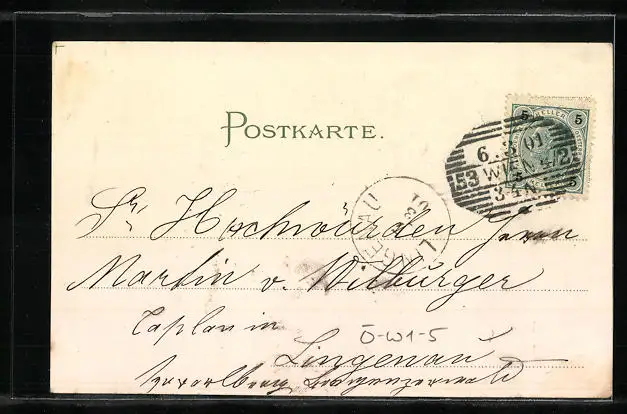 POSTKARTE.
5 HELLER 5
6. 3. 01
53 WIEN 4/2
3-4N
LINGENAU
Sr Hochwürden Herrn
Martin v. Wilburger
Caplan in
Ö-W1-5
Lingenau
Vorarlberg Bregenzerwald